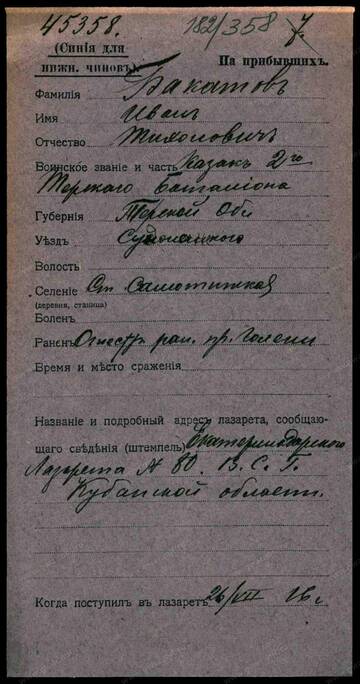 45358. 182/358 7.
(Синія для нижн. чиновъ) На прибывшихъ.
Фамилія Бакатовъ
Имя Иванъ
Отчество Тихоновичъ
Воинское званіе и часть Казакъ 2го
Терскаго Баталіона
Губернія Терской Обл
Уѣздъ
Волость
Селеніе Ст.
(деревня, станица)
Боленъ
Раненъ Огнестр. ран. пр. Голени
Время и мѣсто сраженія
Названіе и подробный адресъ лазарета, сообщаю-
щаго свѣдѣнія (штемпель) Екатеринодарскаго
Лазарета № 80. В. С. Г.
Кубанской области.
Когда поступилъ въ лазаретъ 26/VII 16 г